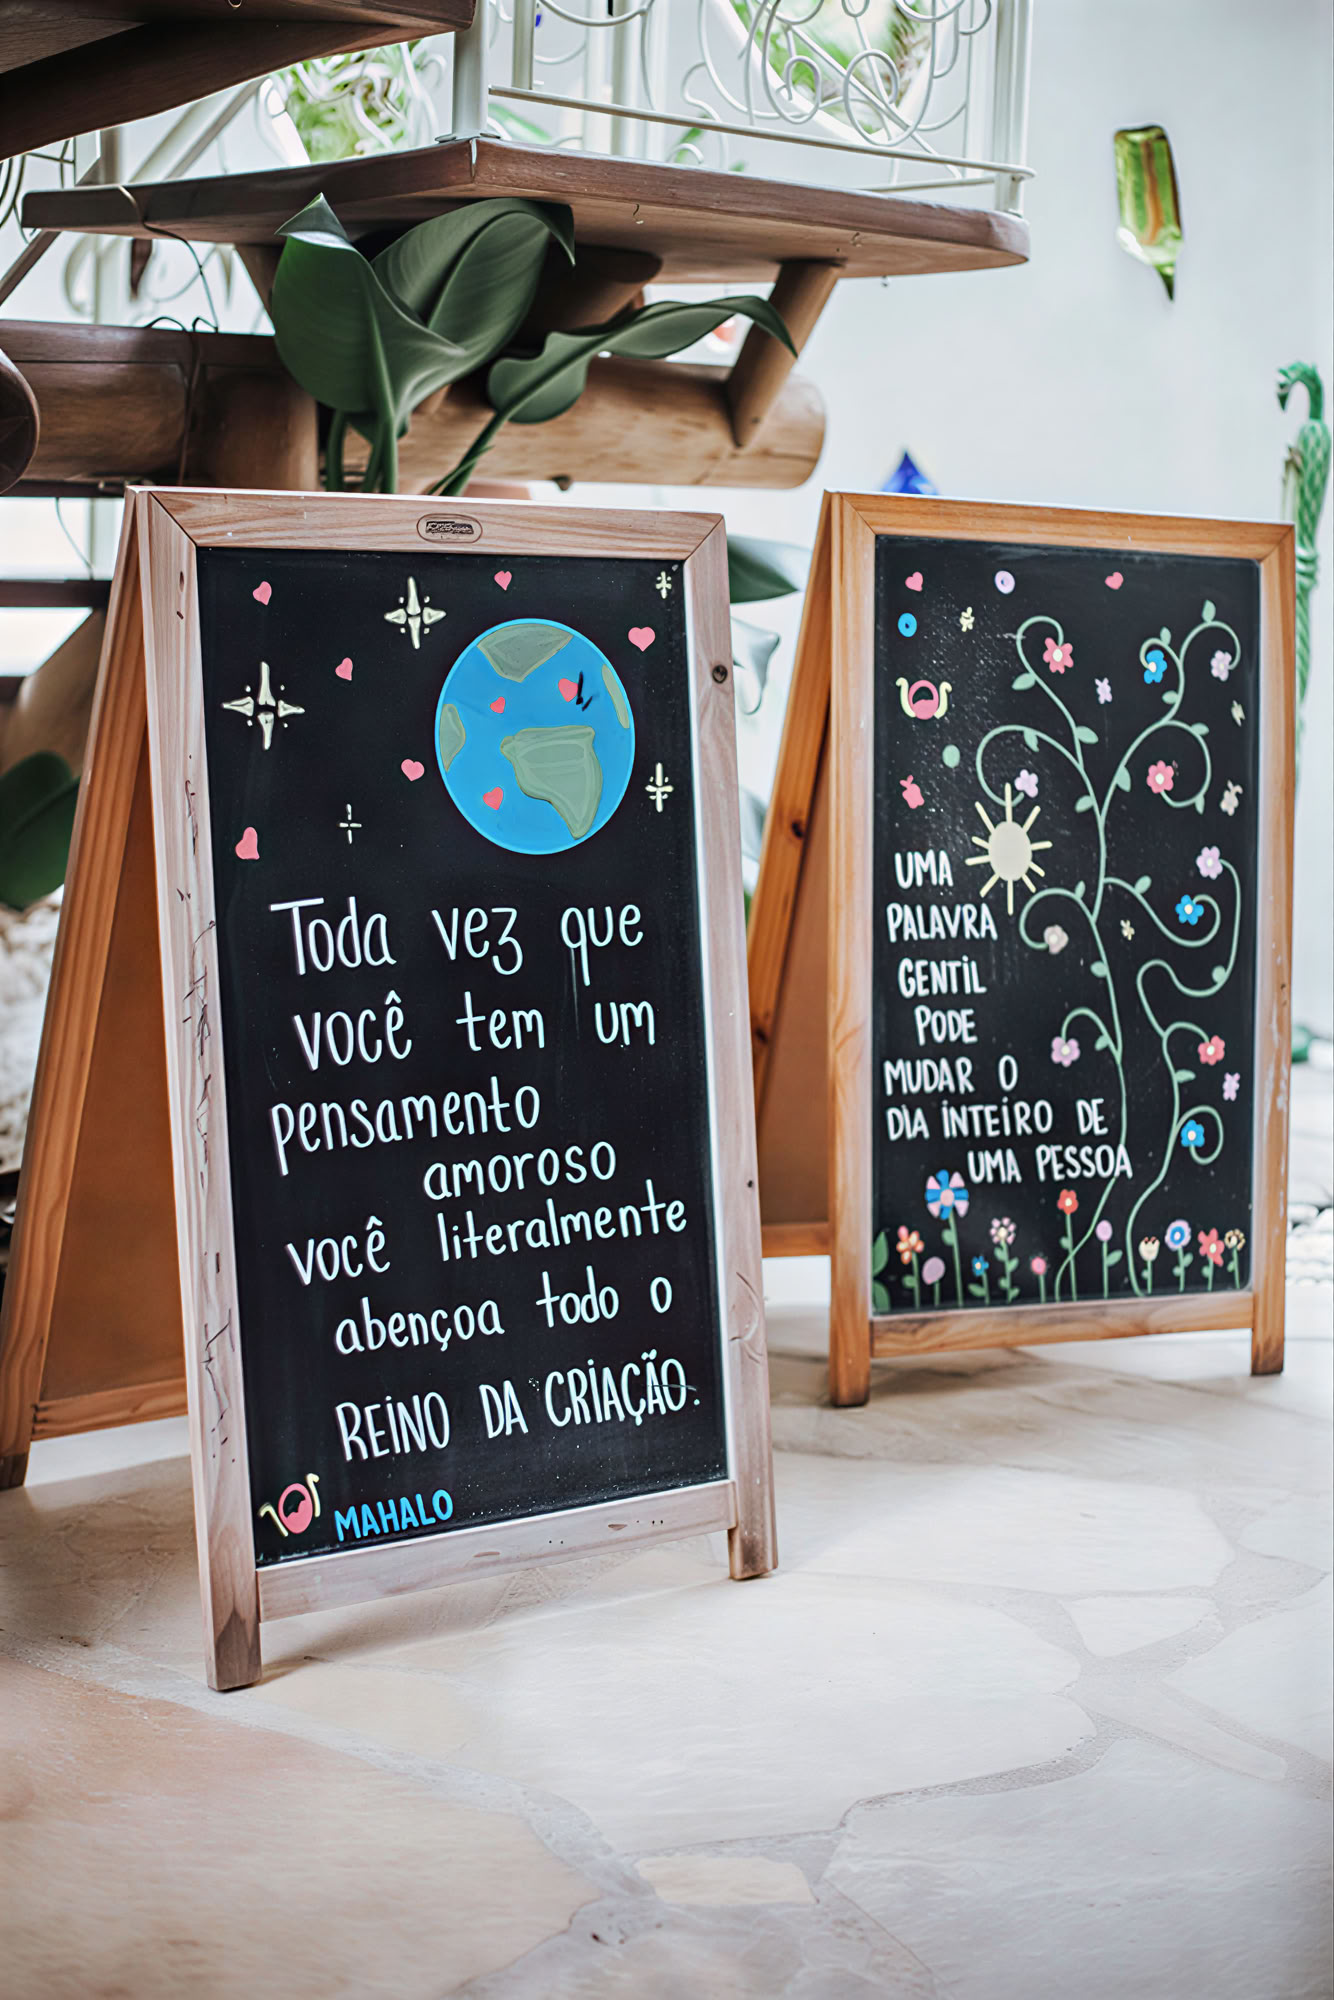 Toda vez que
você tem um
pensamento
amoroso
você literalmente
abençoa todo o
REINO DA CRIAÇÃO.
MAHALO
UMA
PALAVRA
GENTIL
PODE
MUDAR O
DIA INTEIRO DE
UMA PESSOA